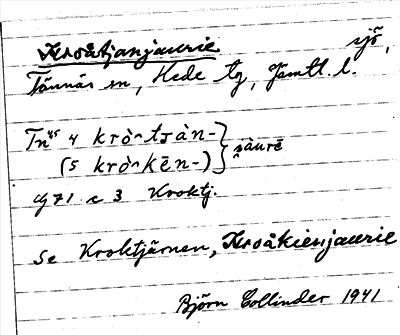 Kroåtjanjaurie sjö,
Tännäs sn, Hede tg, Jämtl. l.
Tn 45 4 krò̀ntján- } sàurē
(5 krò̀nkēn-)
Kroktj.
Se Kroktjärnen, Kroåkienjaurie
Björn Collinder 1941